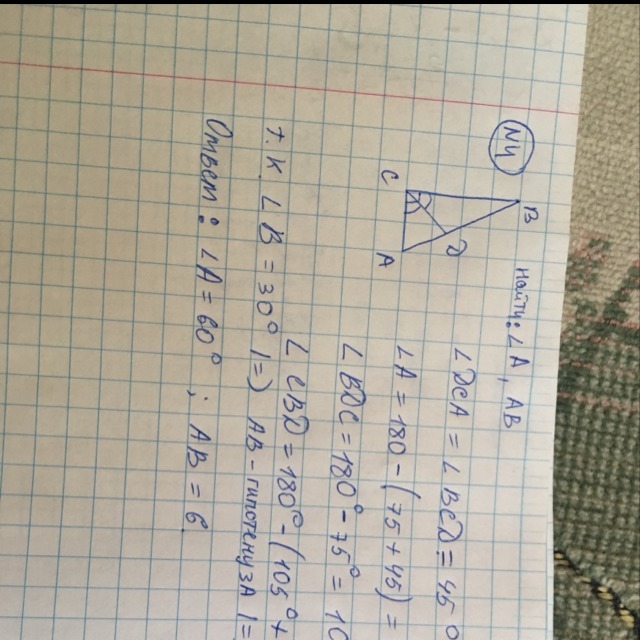 N4
B
C
D
A
найти: ∠A, AB
∠DCA = ∠BCD = 45°
∠A = 180 - (75 + 45) =
∠BDC = 180° - 75° = 10
∠CBD = 180° - (105° +
т.к. ∠B = 30° |=> AB - гипотенуза |=
Ответ: ∠A = 60° ; AB = 6.